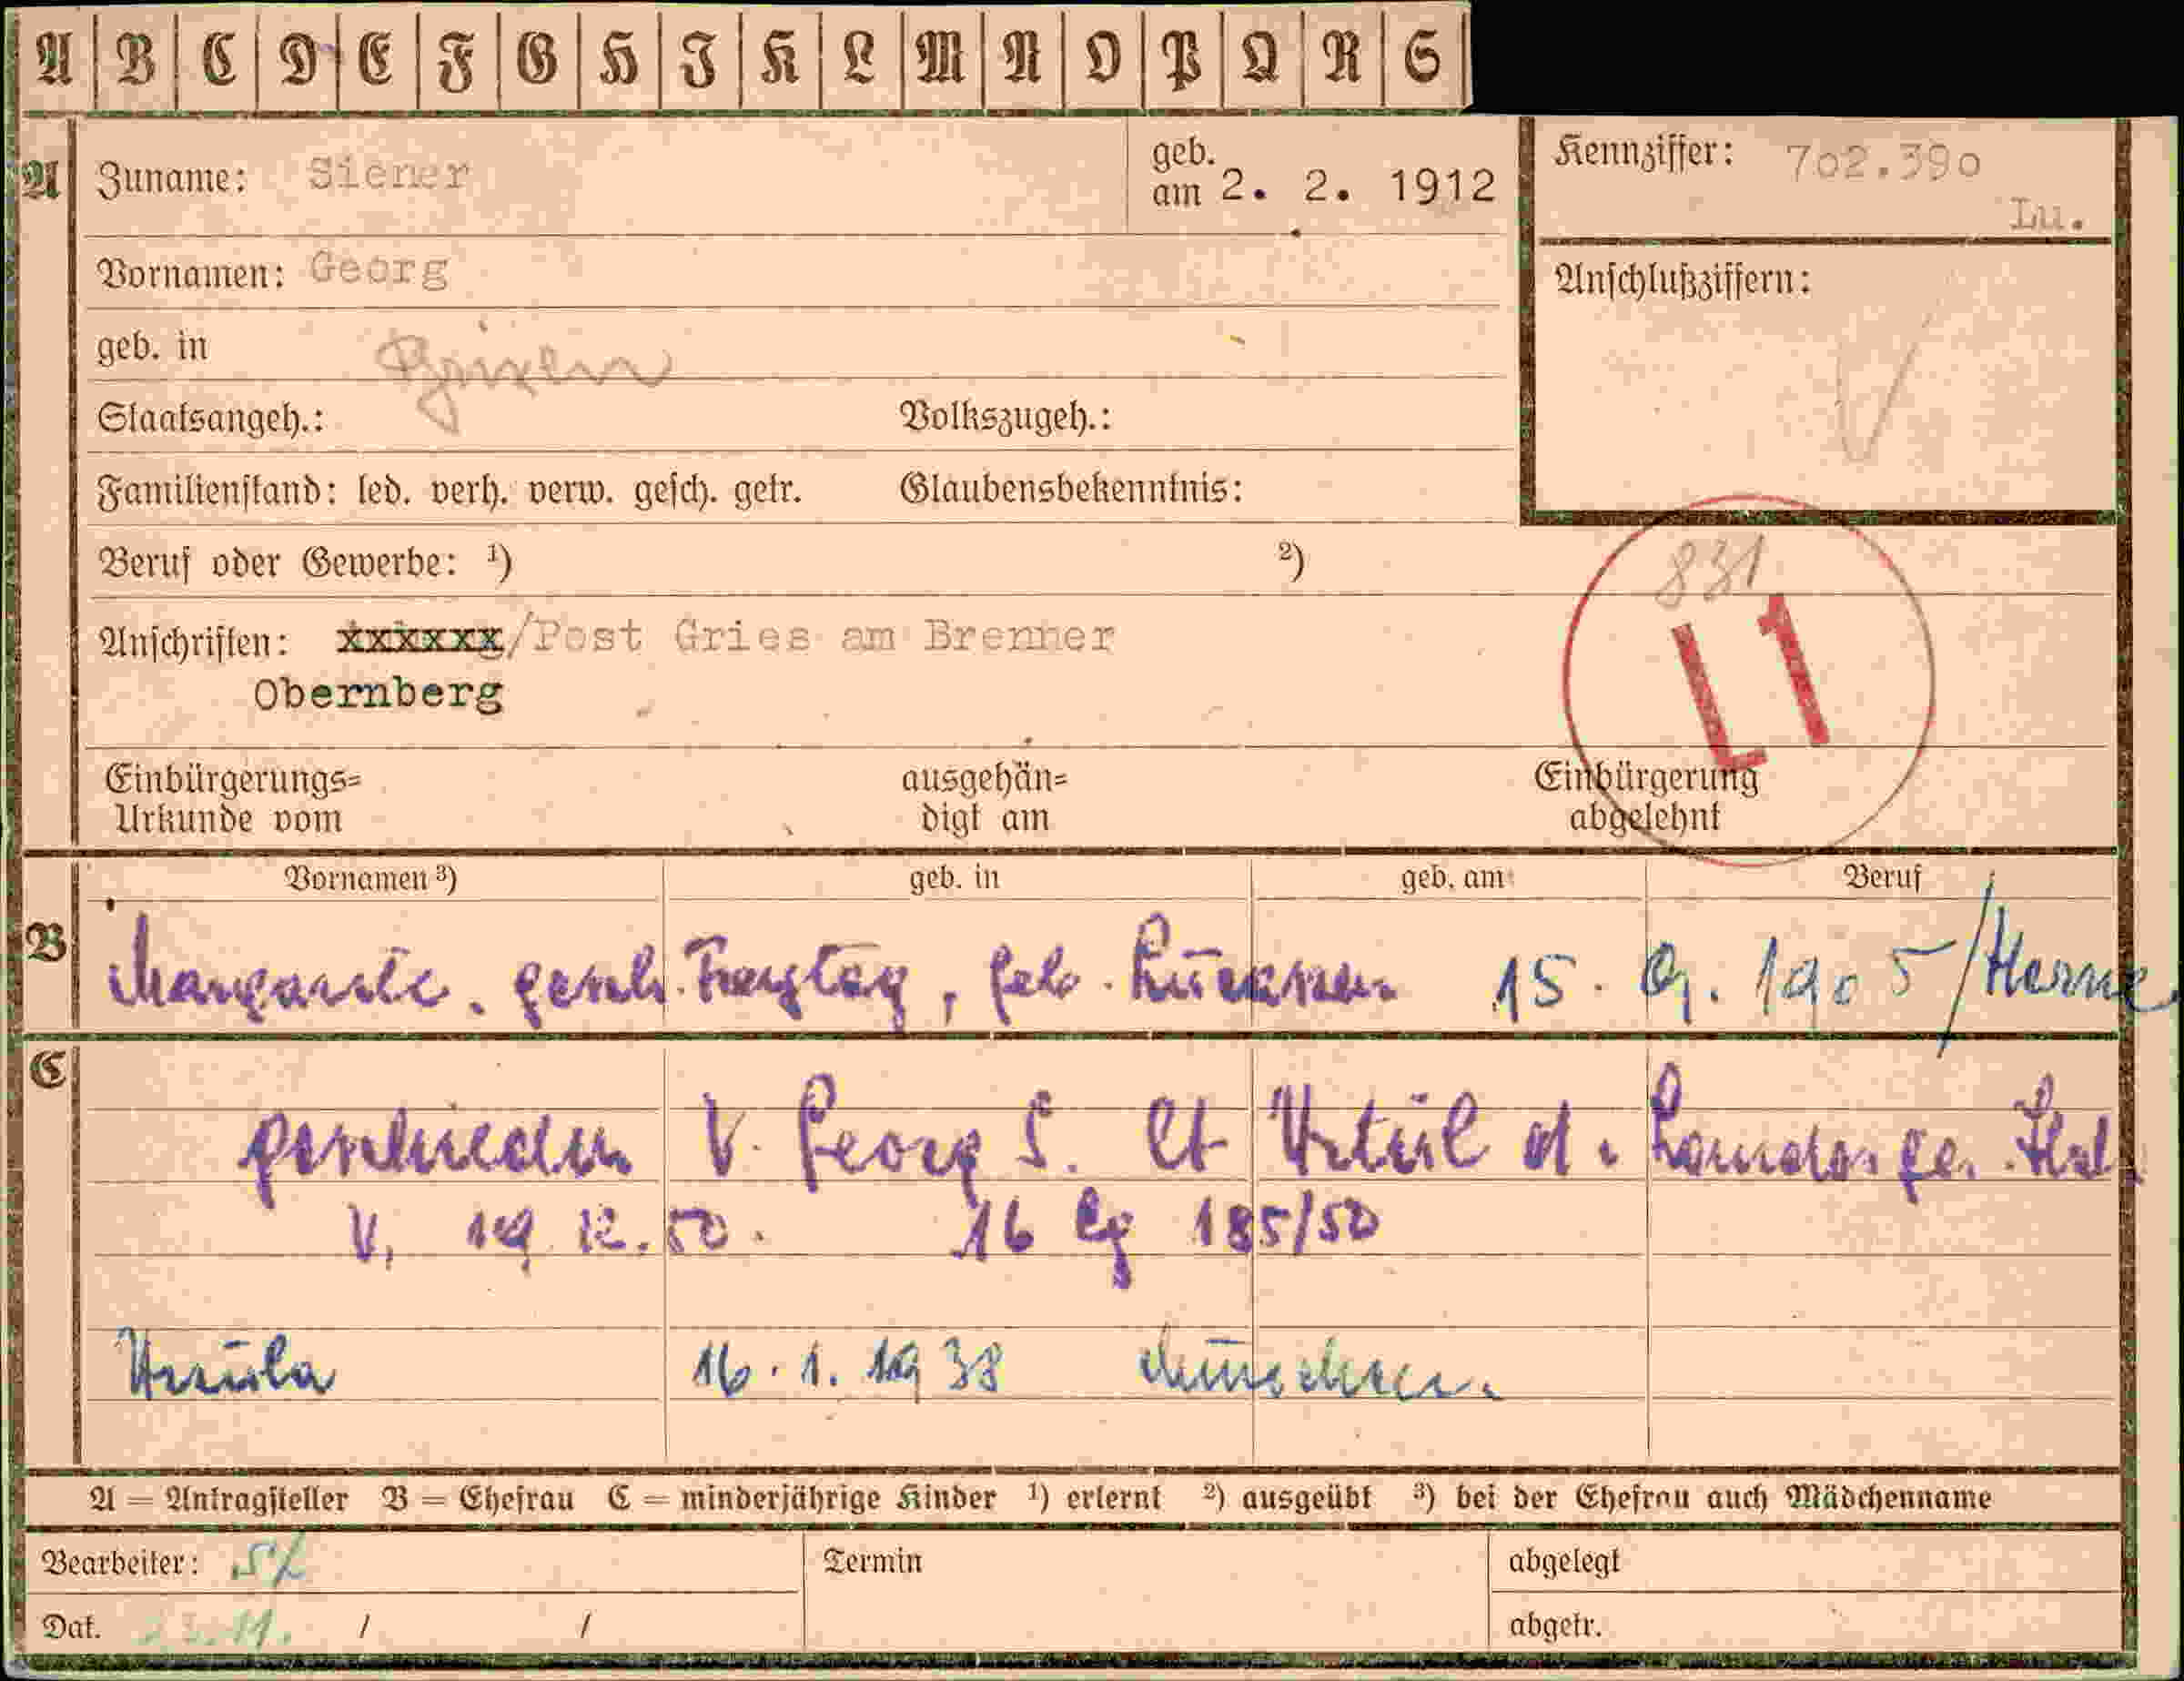 A B C D E F G H I K L M N O P Q R S
A Zuname: Siener geb. am 2. 2. 1912
Kennziffer: 702.390
Lu.
Vornamen: Georg
Anschlußziffern:
geb. in Brixen
Staatsangeh.: Volkszugeh.:
Familienstand: led. verh. verw. gesch. getr. Glaubensbekenntnis:
Beruf oder Gewerbe: ¹) ²)
831
L1
Anschriften: xxxxxx/Post Gries am Brenner
Obernberg
Einbürgerungs= ausgehän= Einbürgerung
Urkunde vom digt am abgelehnt
Vornamen ³) geb. in geb. am Beruf
B Margarete. gesch. Freytag, geb. 15. 9. 1905/Herne
C
geschieden v. Georg S. lt Urteil d.
v. 19 12. 50. 16 Cg 185/50
Ursula 16. 1. 1938 München.
A = Antragsteller B = Ehefrau C = minderjährige Kinder ¹) erlernt ²) ausgeübt ³) bei der Ehefrau auch Mädchenname
Bearbeiter: Termin abgelegt
Dat. / / abgetr.